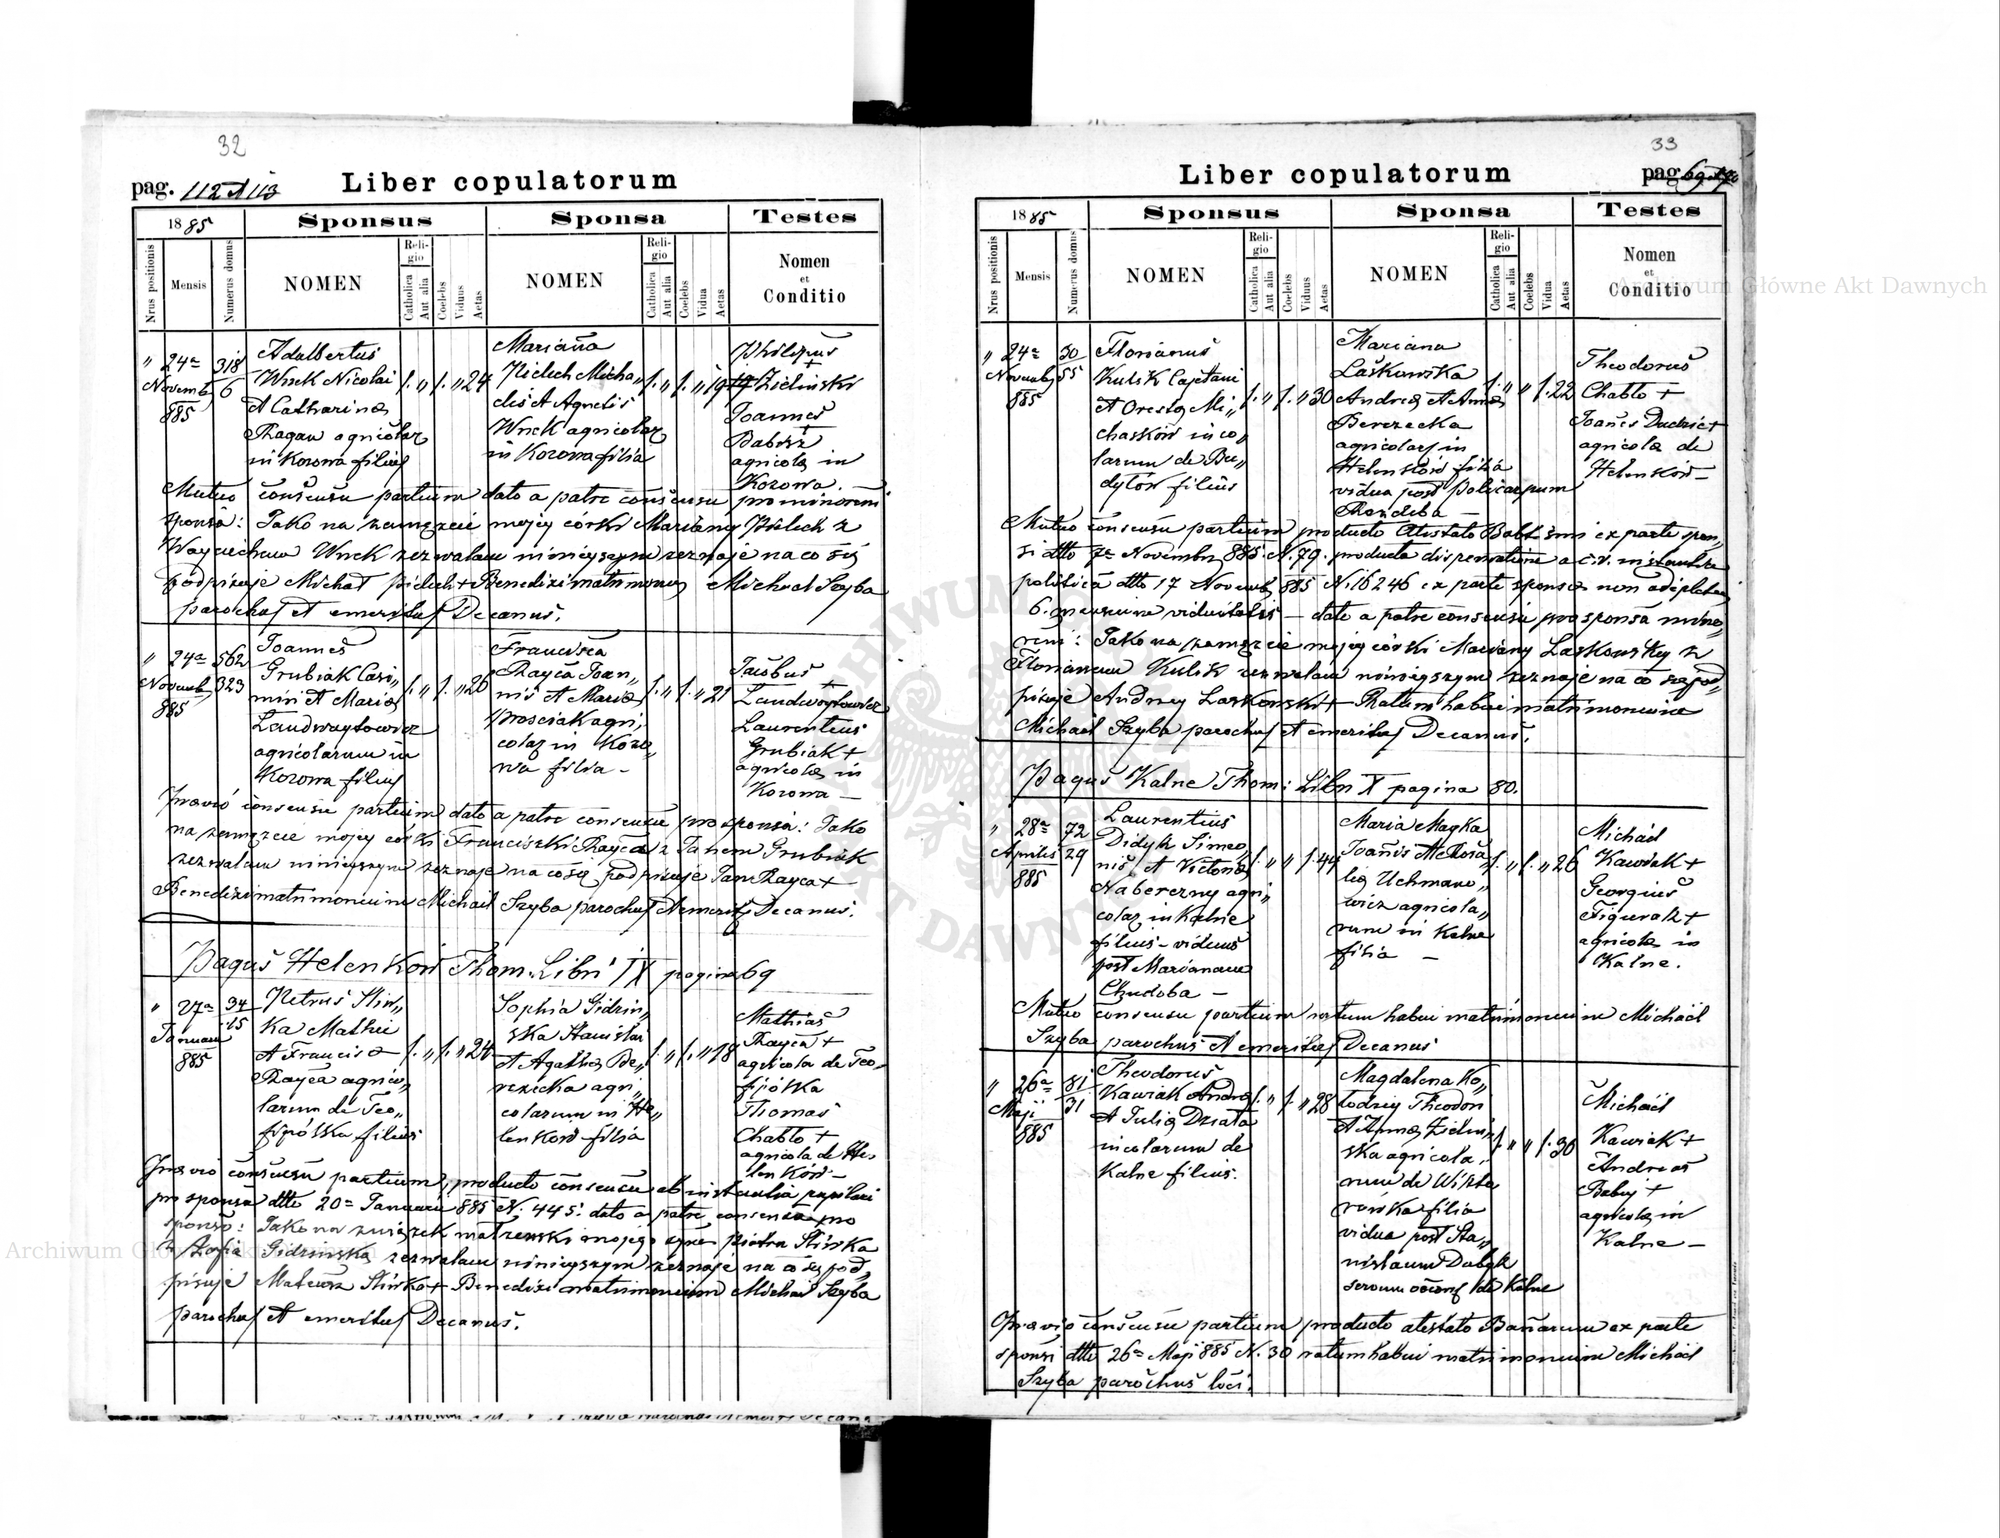 32
pag. 112 et 113 Liber copulatorum
1885 Sponsus Sponsa Testes
Nrus positionis Mensis Numerus domus NOMEN Religio Catholica Aut alia Coelebs Viduus Aetas NOMEN Religio Catholica Aut alia Coelebs Vidua Aetas Nomen et Conditio
" 24a Novemb 885
318 6
Adalbertus
Wnek Nicolai
et Catharinæ
Ragan agricolar
in Kozowa filius
1. " 1. " 24
Marianna
Pielech Micha„
elis et Agnetis
Wnek agricolar
in Kozowa filia
1. " 1. " 19
Philipus +
Zieliński
Joannes +
Babisz
agricolæ in
Kozowa.
Mutuo consensu partium dato a patre consensu pro minoreni
sponsa: Jako na zamęzcie mojey córki Maryany Pielech z
Woyciechem Wnek zezwalam niniejszym zeznaje na co się
podpisuje Michał Pielech + Benedixi matrimonium Michael Szyba
parochus et emeritus Decanus.
" 24a Novemb 885
562 323
Joannes
Grubiak Casi„
miri et Mariæ
Landwoytowicz
agricolarum in
Kozowa filius
1. " 1. " 26
Francisca
Rayca Joan„
nis et Mariæ
Prosciak agri„
colar in Kozo„
wa filia –
1. " 1. " 21
Jacobus +
Landwoytowicz
Laurentius
Grubiak +
agricolæ in
Kozowa –
Prævio consensu partium dato a patre consensu pro sponsa: Jako
na zamęzcie mojey córki Franciszki Rayca z Janem Grubiak
zezwalam niniejszym zeznaje na co się podpisuje Jan Rayca +
Benedixi matrimonium Michael Szyba parochus et emeritus Decanus.
Pagus Helenków Thom. Libri IX pagina 69
" 27a Januarii 885
34 15
Petrus Sliw„
ka Mathei
et Francisæ
Rayca agrico„
larum de Teo„
fipólka filius
1. " 1. " 24
Sophia Gidzin„
ska Stanislai
et Agathæ Be„
rezecka agri„
colarum in He„
lenków filia
1. " 1. " 18
Mathias
Rayca +
agricola de Teo„
fipólka
Thomas
Chabło +
agricola de He„
lenków –
Prævio consensu partium, producto consensu ab instantia pupilari
pro sponsa dtto 20a Januarii 885 N. 445. dato a patre consensu pro
sponso: Jako na związek małżenski mojego syna Piotra Sliwka
z Zofią Gidzinską zezwalam niniejszym zeznaje na co się pod„
pisuje Mateusz Sliwka + Benedixi matrimonium Michael Szyba
parochus et emeritus Decanus.
33
Liber copulatorum pag. 69 et 70
1885 Sponsus Sponsa Testes
Nrus positionis Mensis Numerus domus NOMEN Religio Catholica Aut alia Coelebs Viduus Aetas NOMEN Religio Catholica Aut alia Coelebs Vidua Aetas Nomen et Conditio
" 24a Novemb 885
50 55
Florianus
Kulik Cajetani
et Orestæ Mi„
chasków inco„
larum de Bu„
dyłów filius
1. " 1. " 30
Mariana
Laskowska
Andreæ et Annæ
Berezecka
agricolar in
Helenków filia
vidua post Policarpum
1. " " 1. 22
Theodorus
Chabło +
Joanes Dudzic +
agricolæ de
Helenków –
Mutuo consensu partium producto Atestato Babt. ex parte spon„
si dtto 7a Novembr 885. N. 79. producta dispensatione a c. r. instantia
politica dtto 17 Novemb 885 N. 16246 ex parte sponsæ non adepletæ
6. mensium viduitatis – dato a patre consensu pro sponsa mino„
reni: Jako na zamęzcie mojey córki Maryany Laskowskiey z
Florianem Kulik zezwalam niniejszym zeznaje na co się pod„
pisuje Andrzey Laskowski + Ratum habui matrimonium
Michael Szyba parochus et emeritus Decanus.
Pagus Kalne Thom: Libri X pagina 80.
" 28a Aprilis 885
72 29
Laurentius
Didyk Simeo„
nis et Victoriæ
Nabereżny agri„
colar in Kalne
filius – viduus
post Marianam
Chudoba –
1. " " 1. 44
Maria Magka
Joanis et Rosa„
liæ Uchmano„
wicz agricola„
rum in Kalne
filia –
1. " 1. " 26
Michael
Kawiak +
Georgius
Figurak +
agricolæ in
Kalne.
Mutuo consensu partium ratum habui matrimonium Michael
Szyba parochus et emeritus Decanus
" 26a Maji 885
81 31
Theodorus
Kawiak Andreæ
et Juliæ Działa
incolarum de
Kalne filius.
1. " 1. " 28
Magdalena Ko„
łodziy Theodori
et Annæ Zielin„
ska agricola„
rum de Wikto„
rówka filia
vidua post Sta„
nislaum Dubyk
1. " " 1. 30
Michael
Kawiak +
Andreas
Babij +
agricolæ in
Kalne –
Prævio consensu partium producto atestato Banorum ex parte
sponsi dtto 26a Maji 885 N. 30 ratum habui matrimonium Michael
Szyba parochus loci.
Archiwum Główne Akt Dawnych